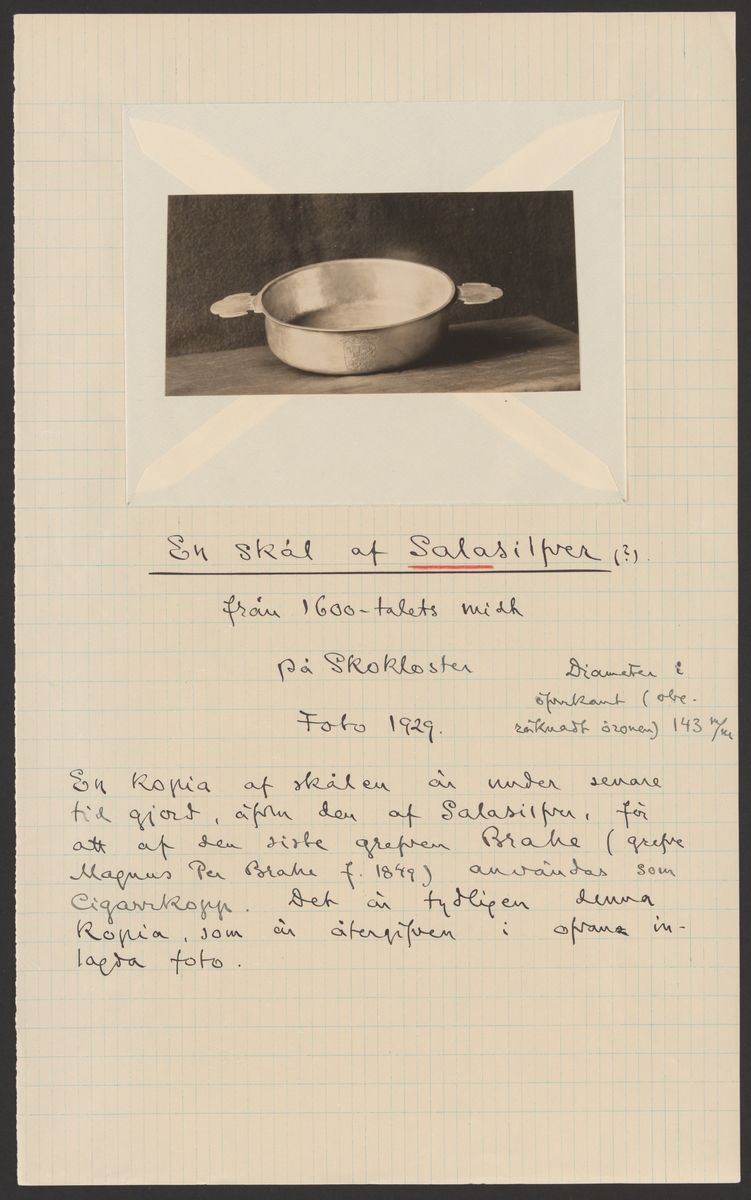 En skål af Salasilfver (?).
från 1600-talets midt
på Skokloster
Foto 1929.
Diameter i
öfverkant (obe-
räknadt öronen) 143 m/m
En kopia af skålen är under senare
tid gjord, äfven den af Salasilfver, för
att af den siste grefven Brahe (grefve
Magnus Per Brahe f. 1849) användas som
Cigarrkopp. Det är tydligen denna
kopia, som är återgifven i ofvan in-
lagda foto.